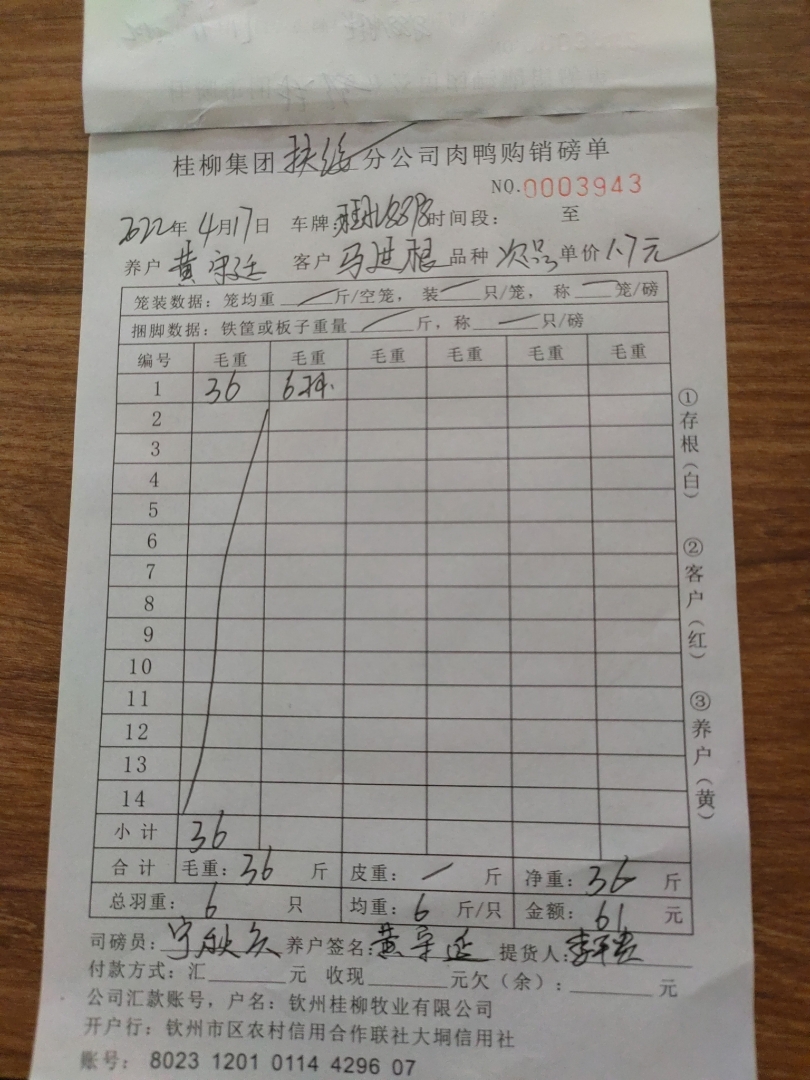 桂柳集团扶绥分公司肉鸭购销磅单
NO.0003943
2022年4月17日 车牌: 时间段: 至
养户 黄守延 客户 马进根 品种 次品 单价 1.7元
笼装数据:笼均重 / 斤/空笼,装 一 只/笼,称 一 笼/磅
捆脚数据:铁筐或板子重量 / 斤,称 一 只/磅
编号 毛重 毛重 毛重 毛重 毛重 毛重
1 36 6
2
3
4
5
6
7
8
9
10
11
12
13
14
小计 36
合计 毛重:36斤 皮重:/ 斤 净重:36斤
总羽重:6 只 均重:6 斤/只 金额:61 元
司磅员: 养户签名:黄守延 提货人:
付款方式:汇 元 收现 元欠(余): 元
公司汇款账号,户名:钦州桂柳牧业有限公司
开户行:钦州市区农村信用合作联社大垌信用社
账号: 8023 1201 0114 4296 07
①存根(白) ②客户(红) ③养户(黄)